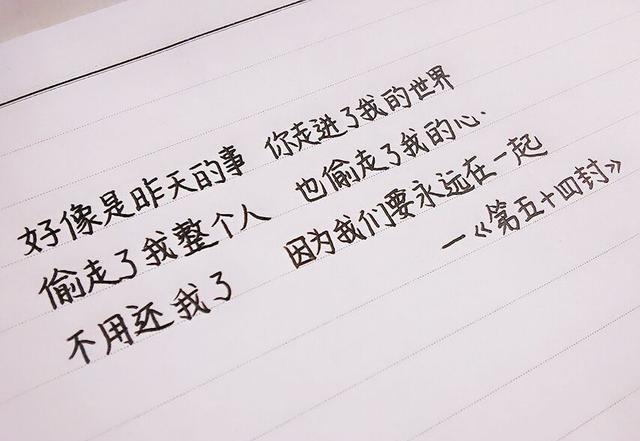 好像是昨天的事 你走进了我的世界
偷走了我整个人 也偷走了我的心.
不用还我了 因为我们要永远在一起
—《第五十四封》